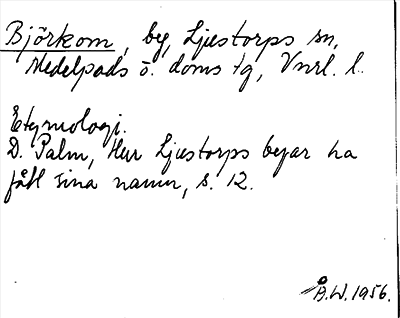 Björkom, by, Ljustorps sn,
Medelpads ö. doms tg, Vnrl. l.
Etymologi.
D. Palm, Hur Ljustorps byar ha
fått sina namn, s. 12.
Å.W. 1956.